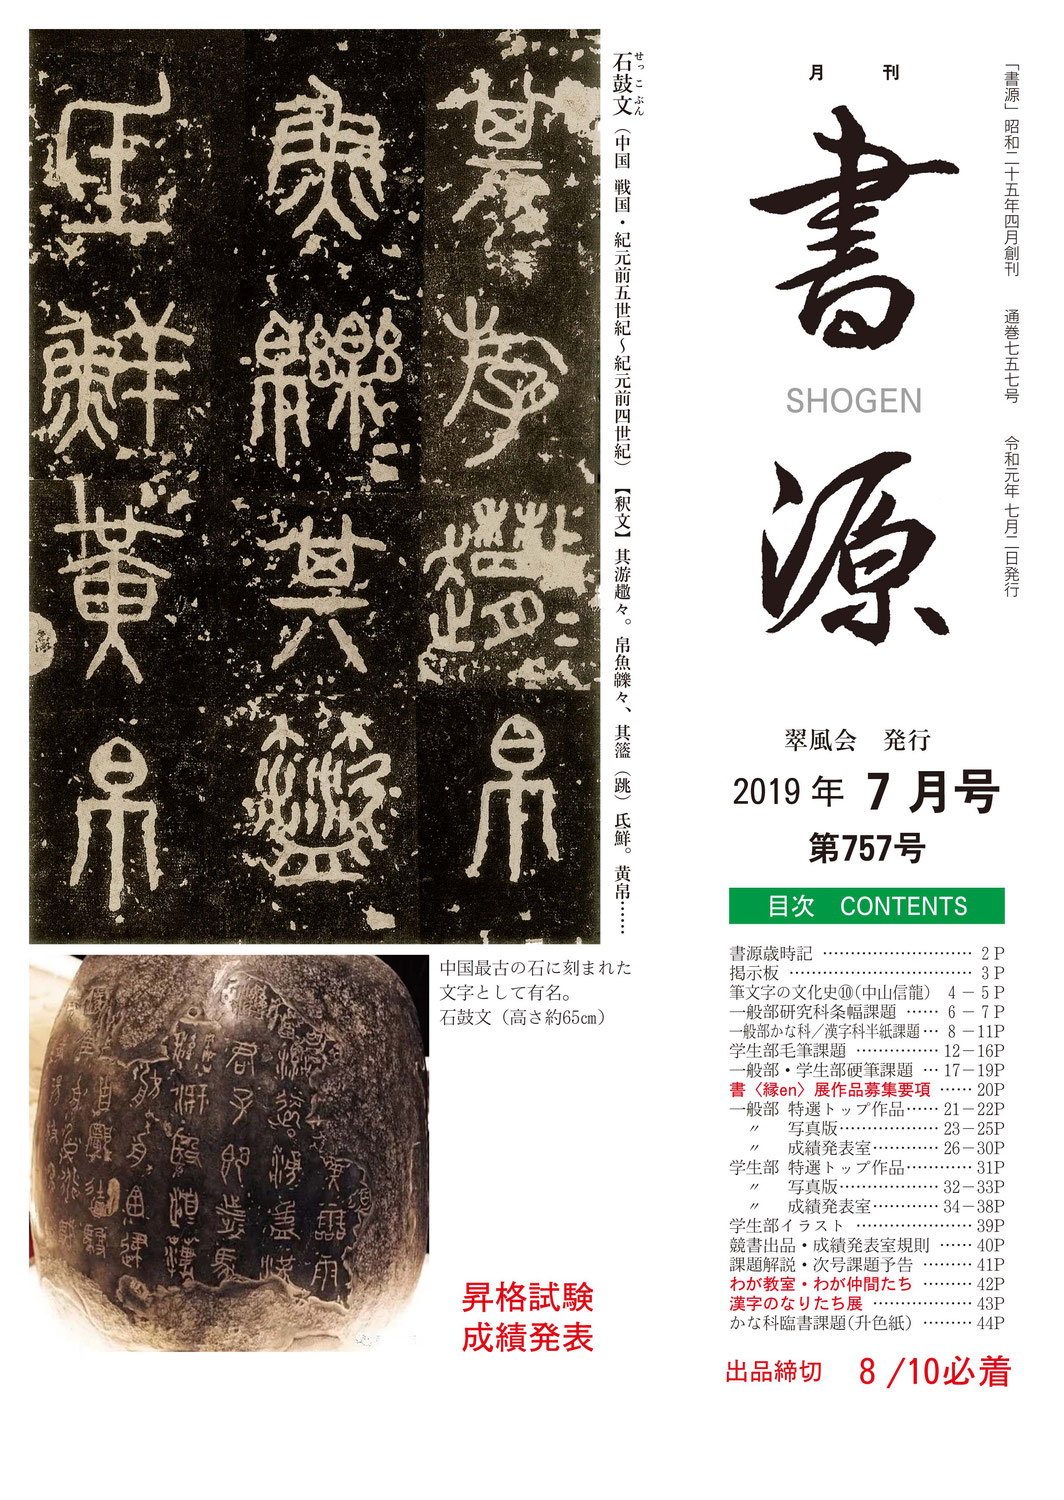 「書源」昭和二十五年四月創刊　通巻七五七号　令和元年七月二日発行
月刊
書源
SHOGEN
翠風会　発行
2019年 7月号
第757号
目次　CONTENTS
書源歳時記 ………………………… 2P
掲示板 …………………………… 3P
筆文字の文化史⑩(中山信龍) 4－5P
一般部研究科条幅課題 …… 6－7P
一般部かな科／漢字科半紙課題… 8－11P
学生部毛筆課題 …………… 12－16P
一般部・学生部硬筆課題 … 17－19P
書〈縁en〉展作品募集要項 …… 20P
一般部 特選トップ作品…… 21－22P
〃 写真版……………… 23－25P
〃 成績発表室………… 26－30P
学生部 特選トップ作品………… 31P
〃 写真版……………… 32－33P
〃 成績発表室………… 34－38P
学生部イラスト ………………… 39P
競書出品・成績発表室規則 …… 40P
課題解説・次号課題予告 ……… 41P
わが教室・わが仲間たち ……… 42P
漢字のなりたち展 ……………… 43P
かな科臨書課題(升色紙) ……… 44P
出品締切　8/10必着
せっこぶん
石鼓文（中国 戦国・紀元前五世紀～紀元前四世紀）【釈文】其游趣々。帛魚鱳々、其（跳）氐鮮。黄帛……
其游
帛
魚鱳其
氐鮮黄帛
中国最古の石に刻まれた
文字として有名。
石鼓文（高さ約65㎝）
昇格試験
成績発表